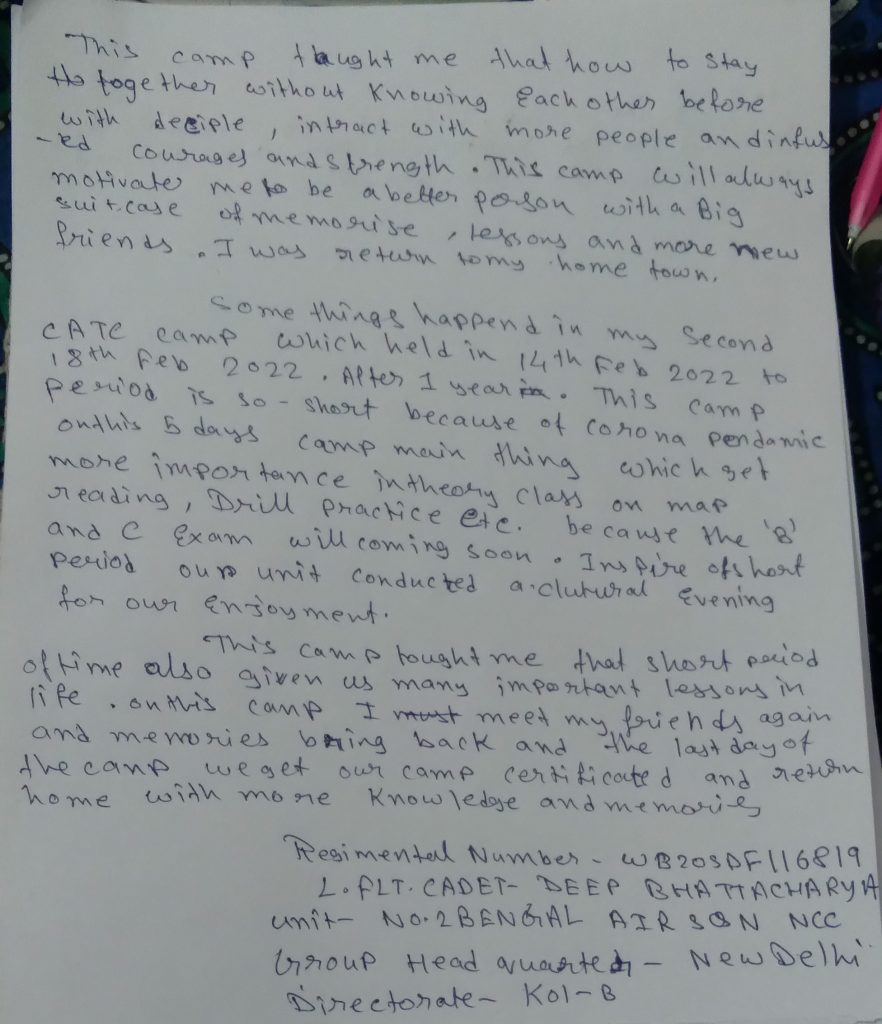 This camp taught me that how to stay
together without Knowing Each other before
with deciple , intract with more people and infus
-ed courages and strength . This camp will always
motivate me to be a better person with a Big
suitcase of memorise , lessons and more new
friends . I was return to my home town.
Some things happend in my Second
CATC camp which held in 14th Feb 2022 to
18th Feb 2022 . After 1 year . This camp
period is so - short because of corona pendamic
on this 5 days camp main thing which get
more importance in theory class on map
reading , Drill practice etc. because the 'B'
and C Exam will coming soon . Inspire of short
period our unit conducted a clutural Evening
for our Enjoyment.
This camp tought me that short period
of time also given us many important lessons in
life . on this camp I meet my friends again
and memories bring back and the last day of
the camp we get our camp certificated and return
home with more Knowledge and memories
Regimental Number - WB20SDF116819
L. FLT. CADET- DEEP BHATTACHARYA
unit- NO.2 BENGAL AIR SQN NCC
Group Head quarter - New Delhi
Directorate - Kol-B